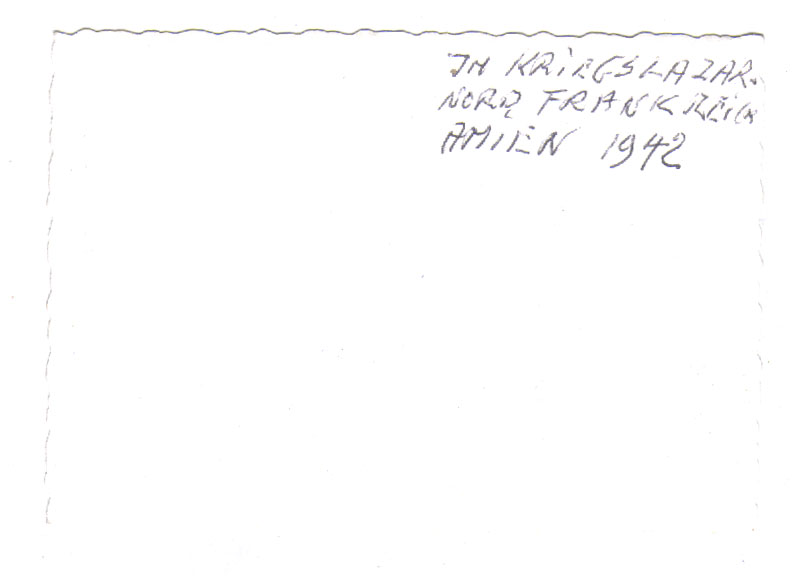 IM KRIEGSLAZAR.
NORD FRANKREICH
AMIEN 1942